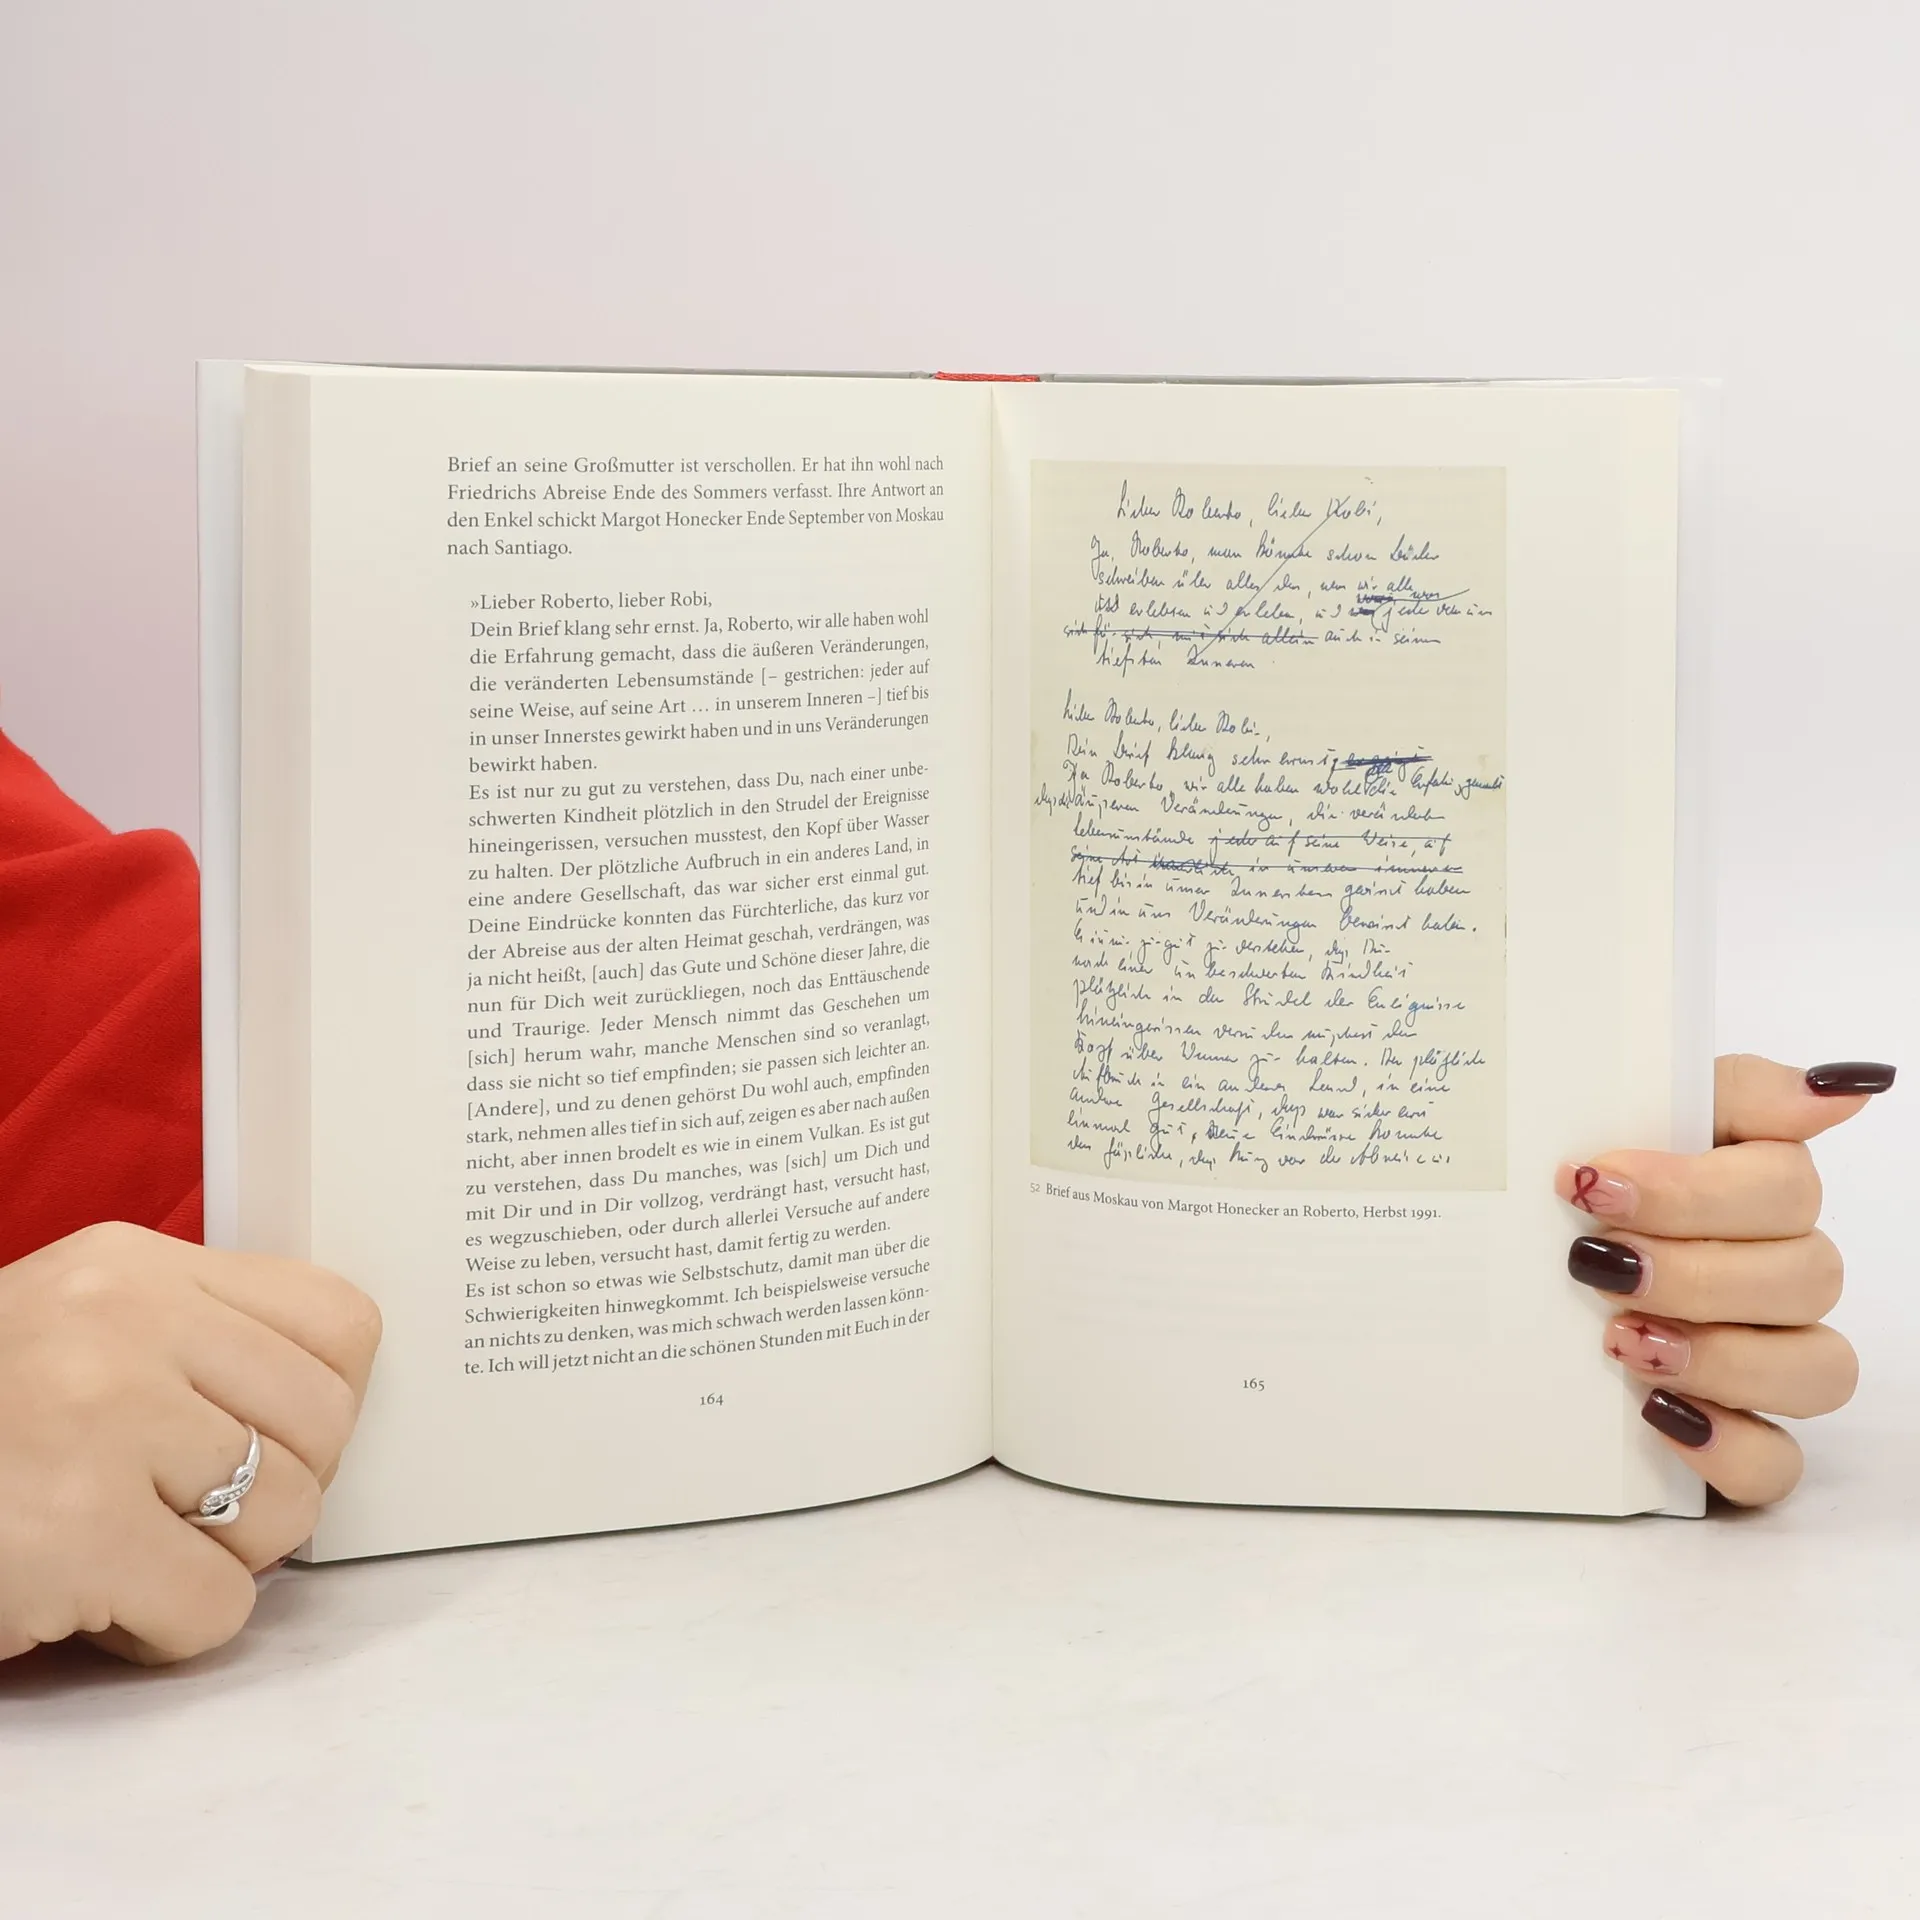 Brief an seine Großmutter ist verschollen. Er hat ihn wohl nach
Friedrichs Abreise Ende des Sommers verfasst. Ihre Antwort an
den Enkel schickt Margot Honecker Ende September von Moskau
nach Santiago.
»Lieber Roberto, lieber Robi,
Dein Brief klang sehr ernst. Ja, Roberto, wir alle haben wohl
die Erfahrung gemacht, dass die äußeren Veränderungen,
die veränderten Lebensumstände [– gestrichen: jeder auf
seine Weise, auf seine Art … in unserem Inneren –] tief bis
in unser Innerstes gewirkt haben und in uns Veränderungen
bewirkt haben.
Es ist nur zu gut zu verstehen, dass Du, nach einer unbe-
schwerten Kindheit plötzlich in den Strudel der Ereignisse
hineingerissen, versuchen musstest, den Kopf über Wasser
zu halten. Der plötzliche Aufbruch in ein anderes Land, in
eine andere Gesellschaft, das war sicher erst einmal gut.
Deine Eindrücke konnten das Fürchterliche, das kurz vor
der Abreise aus der alten Heimat geschah, verdrängen, was
ja nicht heißt, [auch] das Gute und Schöne dieser Jahre, die
nun für Dich weit zurückliegen, noch das Enttäuschende
und Traurige. Jeder Mensch nimmt das Geschehen um
[sich] herum wahr, manche Menschen sind so veranlagt,
dass sie nicht so tief empfinden; sie passen sich leichter an.
[Andere], und zu denen gehörst Du wohl auch, empfinden
stark, nehmen alles tief in sich auf, zeigen es aber nach außen
nicht, aber innen brodelt es wie in einem Vulkan. Es ist gut
zu verstehen, dass Du manches, was [sich] um Dich und
mit Dir und in Dir vollzog, verdrängt hast, versucht hast,
es wegzuschieben, oder durch allerlei Versuche auf andere
Weise zu leben, versucht hast, damit fertig zu werden.
Es ist schon so etwas wie Selbstschutz, damit man über die
Schwierigkeiten hinwegkommt. Ich beispielsweise versuche
an nichts zu denken, was mich schwach werden lassen könn-
te. Ich will jetzt nicht an die schönen Stunden mit Euch in der
164
Lieber Roberto, lieber Robi,
Ja, Roberto, man könnte schon Bücher
schreiben über alles das, was wir alle
erlebten und erleben, und jeder von uns
sich allein auch in seinem
tiefsten Inneren
Lieber Roberto, lieber Robi,
Dein Brief klang sehr ernst
Ja Roberto, wir alle haben wohl die Erfahrung gemacht
äusseren Veränderungen, die veränderten
Lebensumstände jeder auf seine Weise, auf
seine Art in unserem inneren
tief bis in unser Innerstes gewirkt haben
und in uns Veränderungen bewirkt haben.
Es ist nur zu gut zu verstehen, dass Du
nach einer unbeschwerten Kindheit
plötzlich in den Strudel der Ereignisse
hineingerissen versuchen musstest den
Kopf über Wasser zu halten. Der plötzliche
Aufbruch in ein anderes Land, in eine
andere Gesellschaft, dass war sicher erst
einmal gut, Deine Eindrücke konnten
das, dass kurz vor der Abreise aus
52 Brief aus Moskau von Margot Honecker an Roberto, Herbst 1991.
165